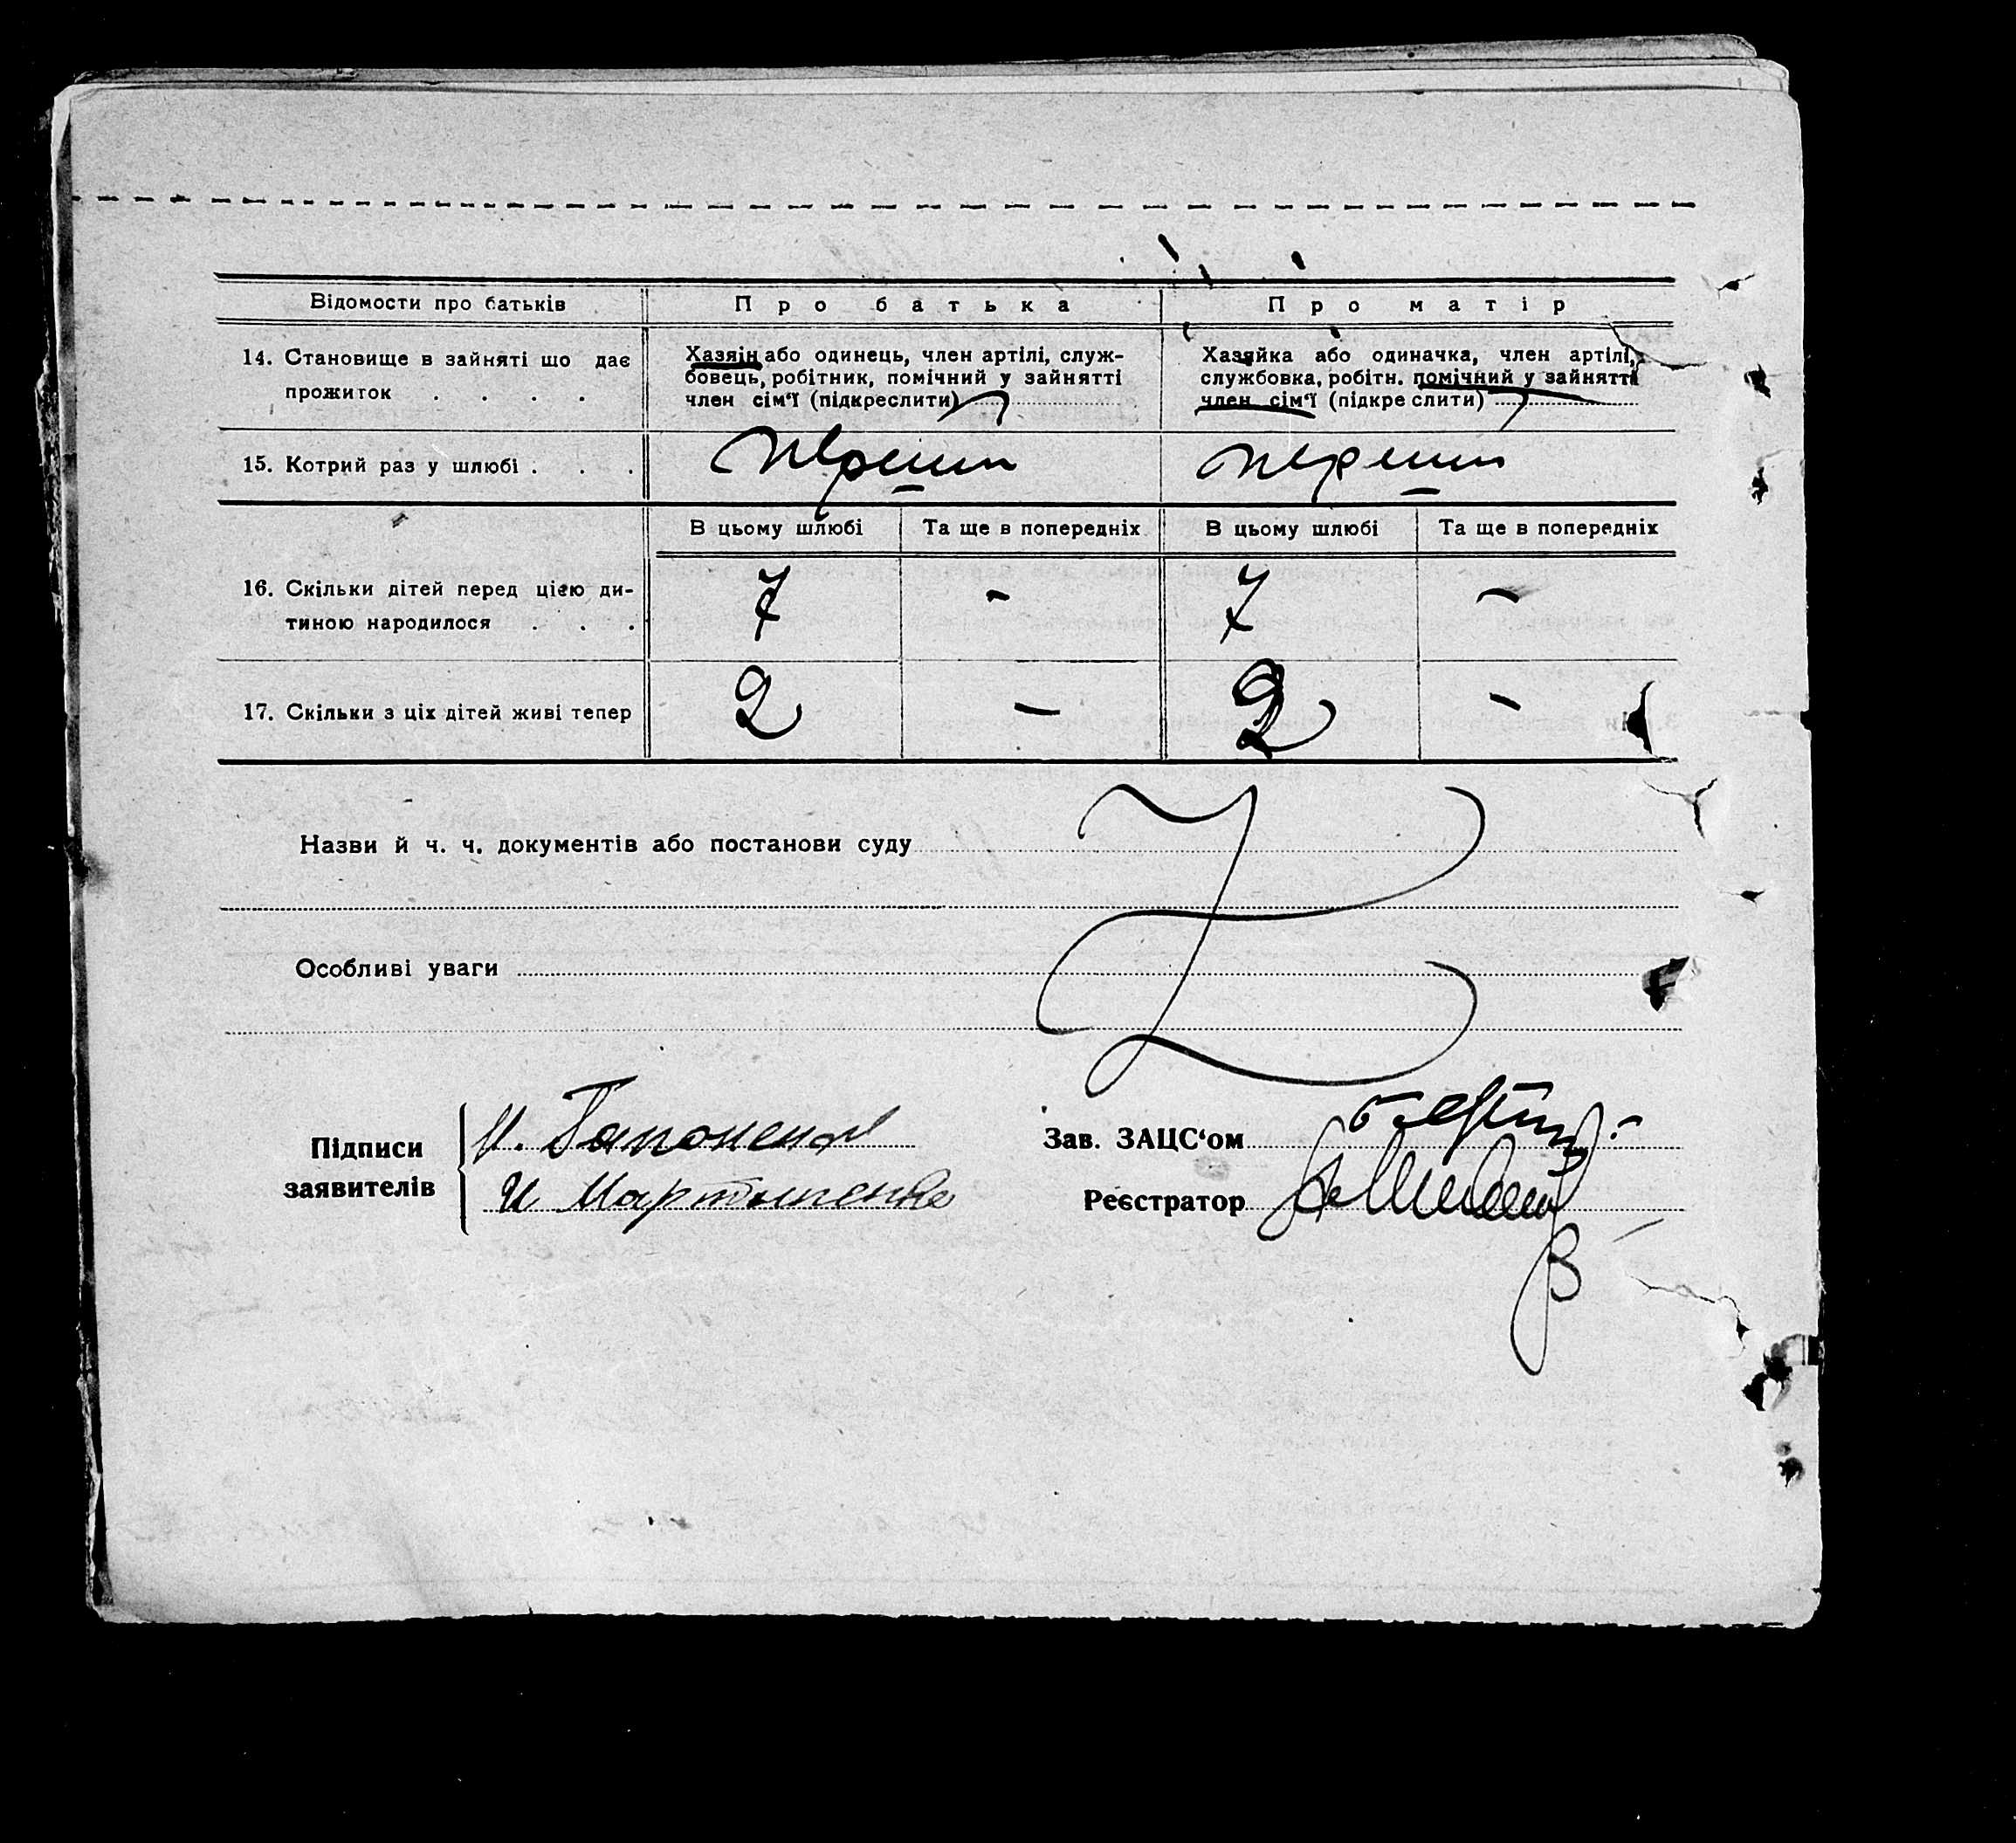 Відомости про батьків
Про батька
Про матір
14. Становище в зайняті що дає
прожиток . . . .
Хазяін або одинець, член артілі, служ-
бовець, робітник, помічний у зайнятті
член сім'ї (підкреслити)
Хазяйка або одиначка, член артілі,
службовка, робітн. помічний у зайнятті
член сім'ї (підкреслити)
15. Котрий раз у шлюбі . . .
перший
перший
В цьому шлюбі
Та ще в попередніх
В цьому шлюбі
Та ще в попередніх
16. Скільки дітей перед цією ди-
тиною народилося . . .
7
-
7
-
17. Скільки з ціх дітей живі тепер
2
-
2
-
Назви й ч. ч. документів або постанови суду
Особливі уваги
Підписи
заявителів
И. Гапоненко
И Мартыненко
Зав. ЗАЦС'ом
Реєстратор